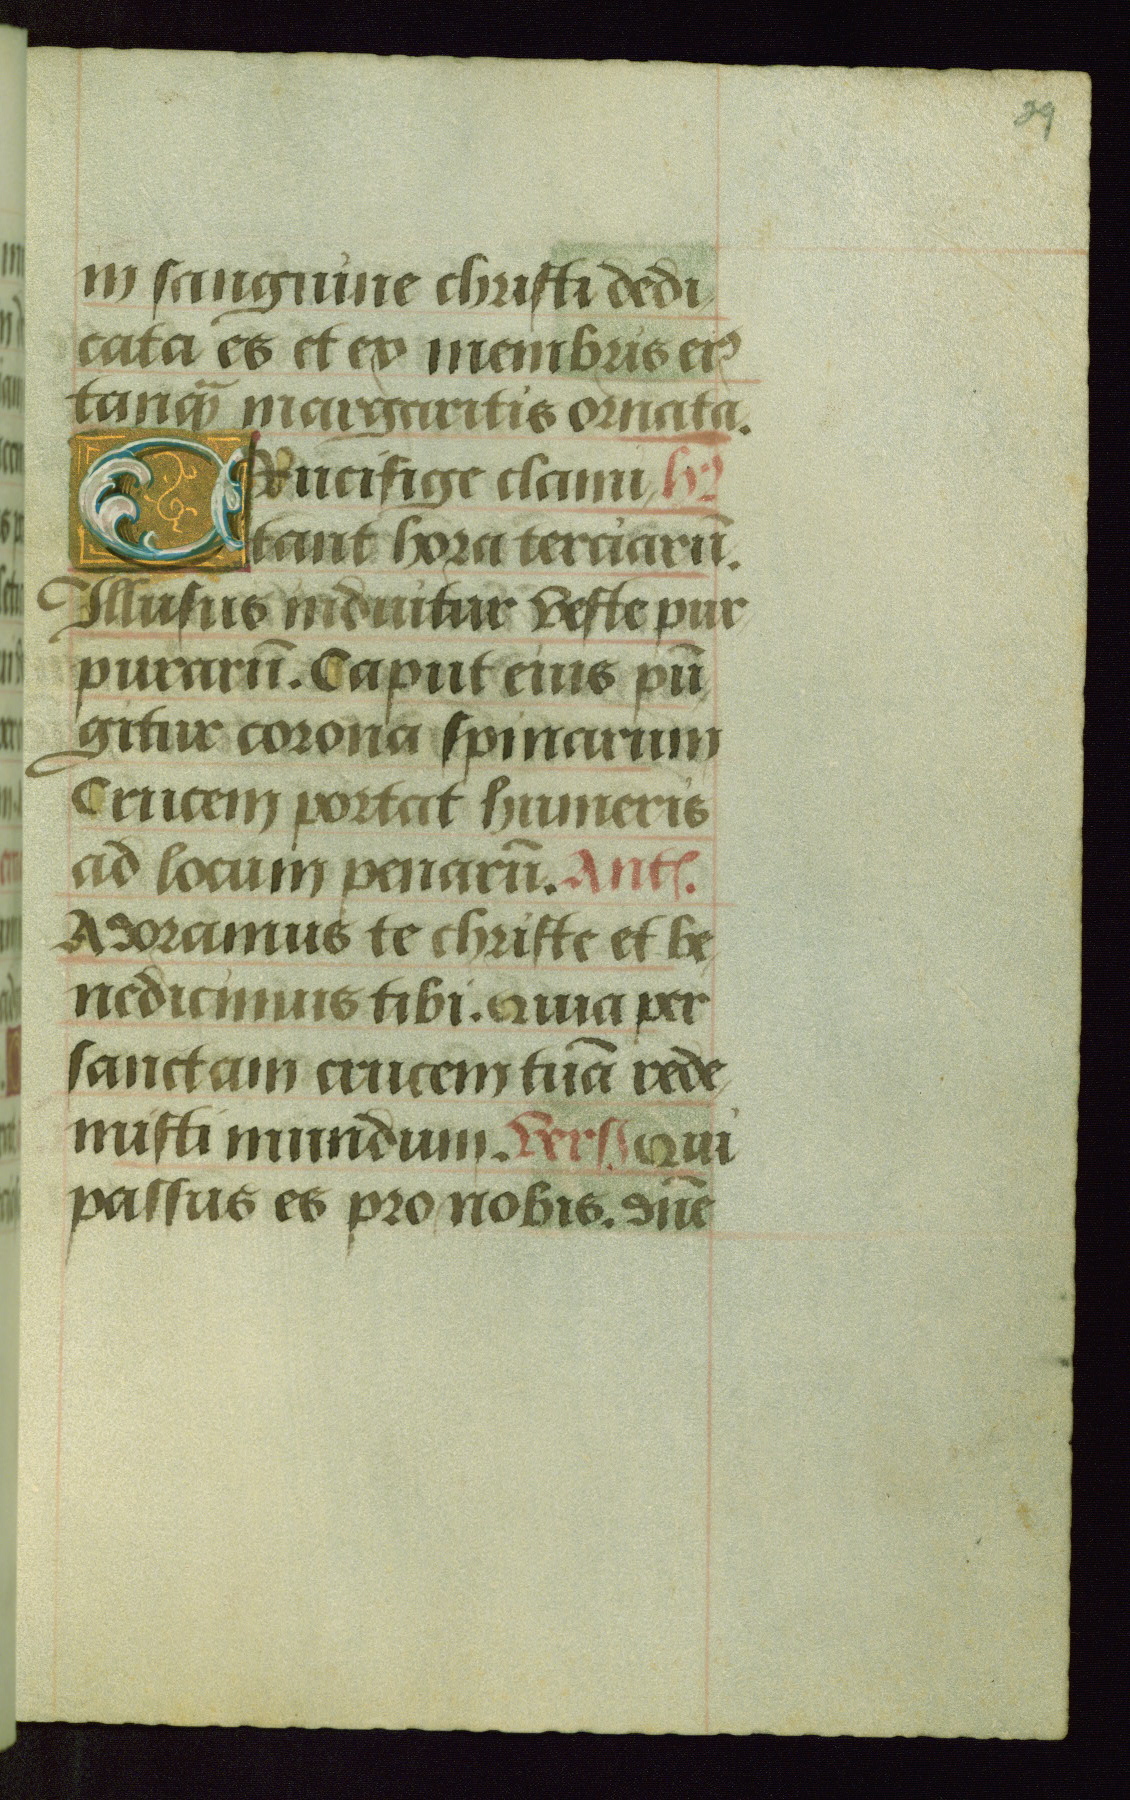 29
in sanguine christi dedi
cata es et ex membris eiꝰ
tanq̄ margaritis ornata.
Crucifige clami hꝰ
tant hora terciarū.
Illusus induitur veste pur
purarū. Caput eius pū
gitur corona spinarum
Crucem portat humeris
ad locum penarū. Ant.
Adoramus te christe et be
nedicimus tibi. Quia per
sanctam crucem tuā rede
misti mundum. Vers. Qui
passus es pro nobis. dn̄e